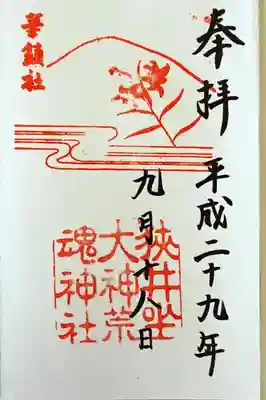 奉拝
平成二十九年
九月十八日
狭井坐
大神荒
魂神社
華鎮社